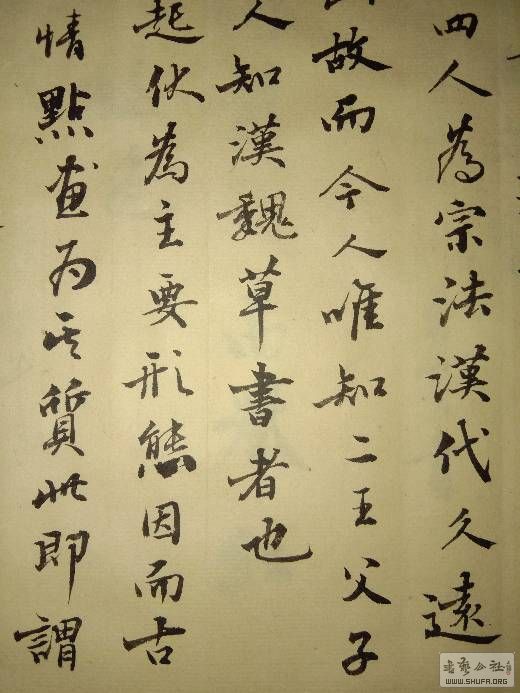 四人為宗法漢代久遠
故而今人唯知二王父子
人知漢魏草書者也
起伏為主要形態因而古
情點画为其質此即謂
書藝公社
WWW.SHUFA.ORG